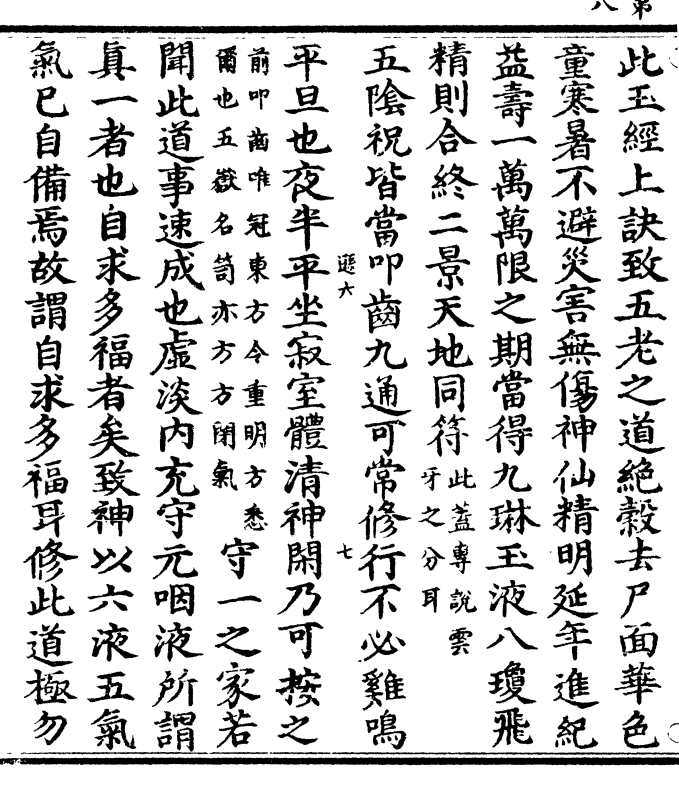 第
八
此玉經上訣致五老之道絶穀去尸面華色
童寒暑不避災害無傷神仙精明延年進紀
益壽一萬萬限之期當得九琳玉液八瓊飛
精則合終二景天地同符此蓋專說雲
牙之分耳
五陰祝皆當叩齒九通可常修行不必雞鳴
遜六
七
平旦也夜半平坐寂室體清神閑乃可按之
前叩齒唯冠東方今重明方悉
爾也五嶽名笥亦方方閉氣守一之家若
聞此道事速成也虛淡内充守元咽液所謂
真一者也自求多福者矣致神以六液五氣
氣已自備焉故謂自求多福耳修此道極勿